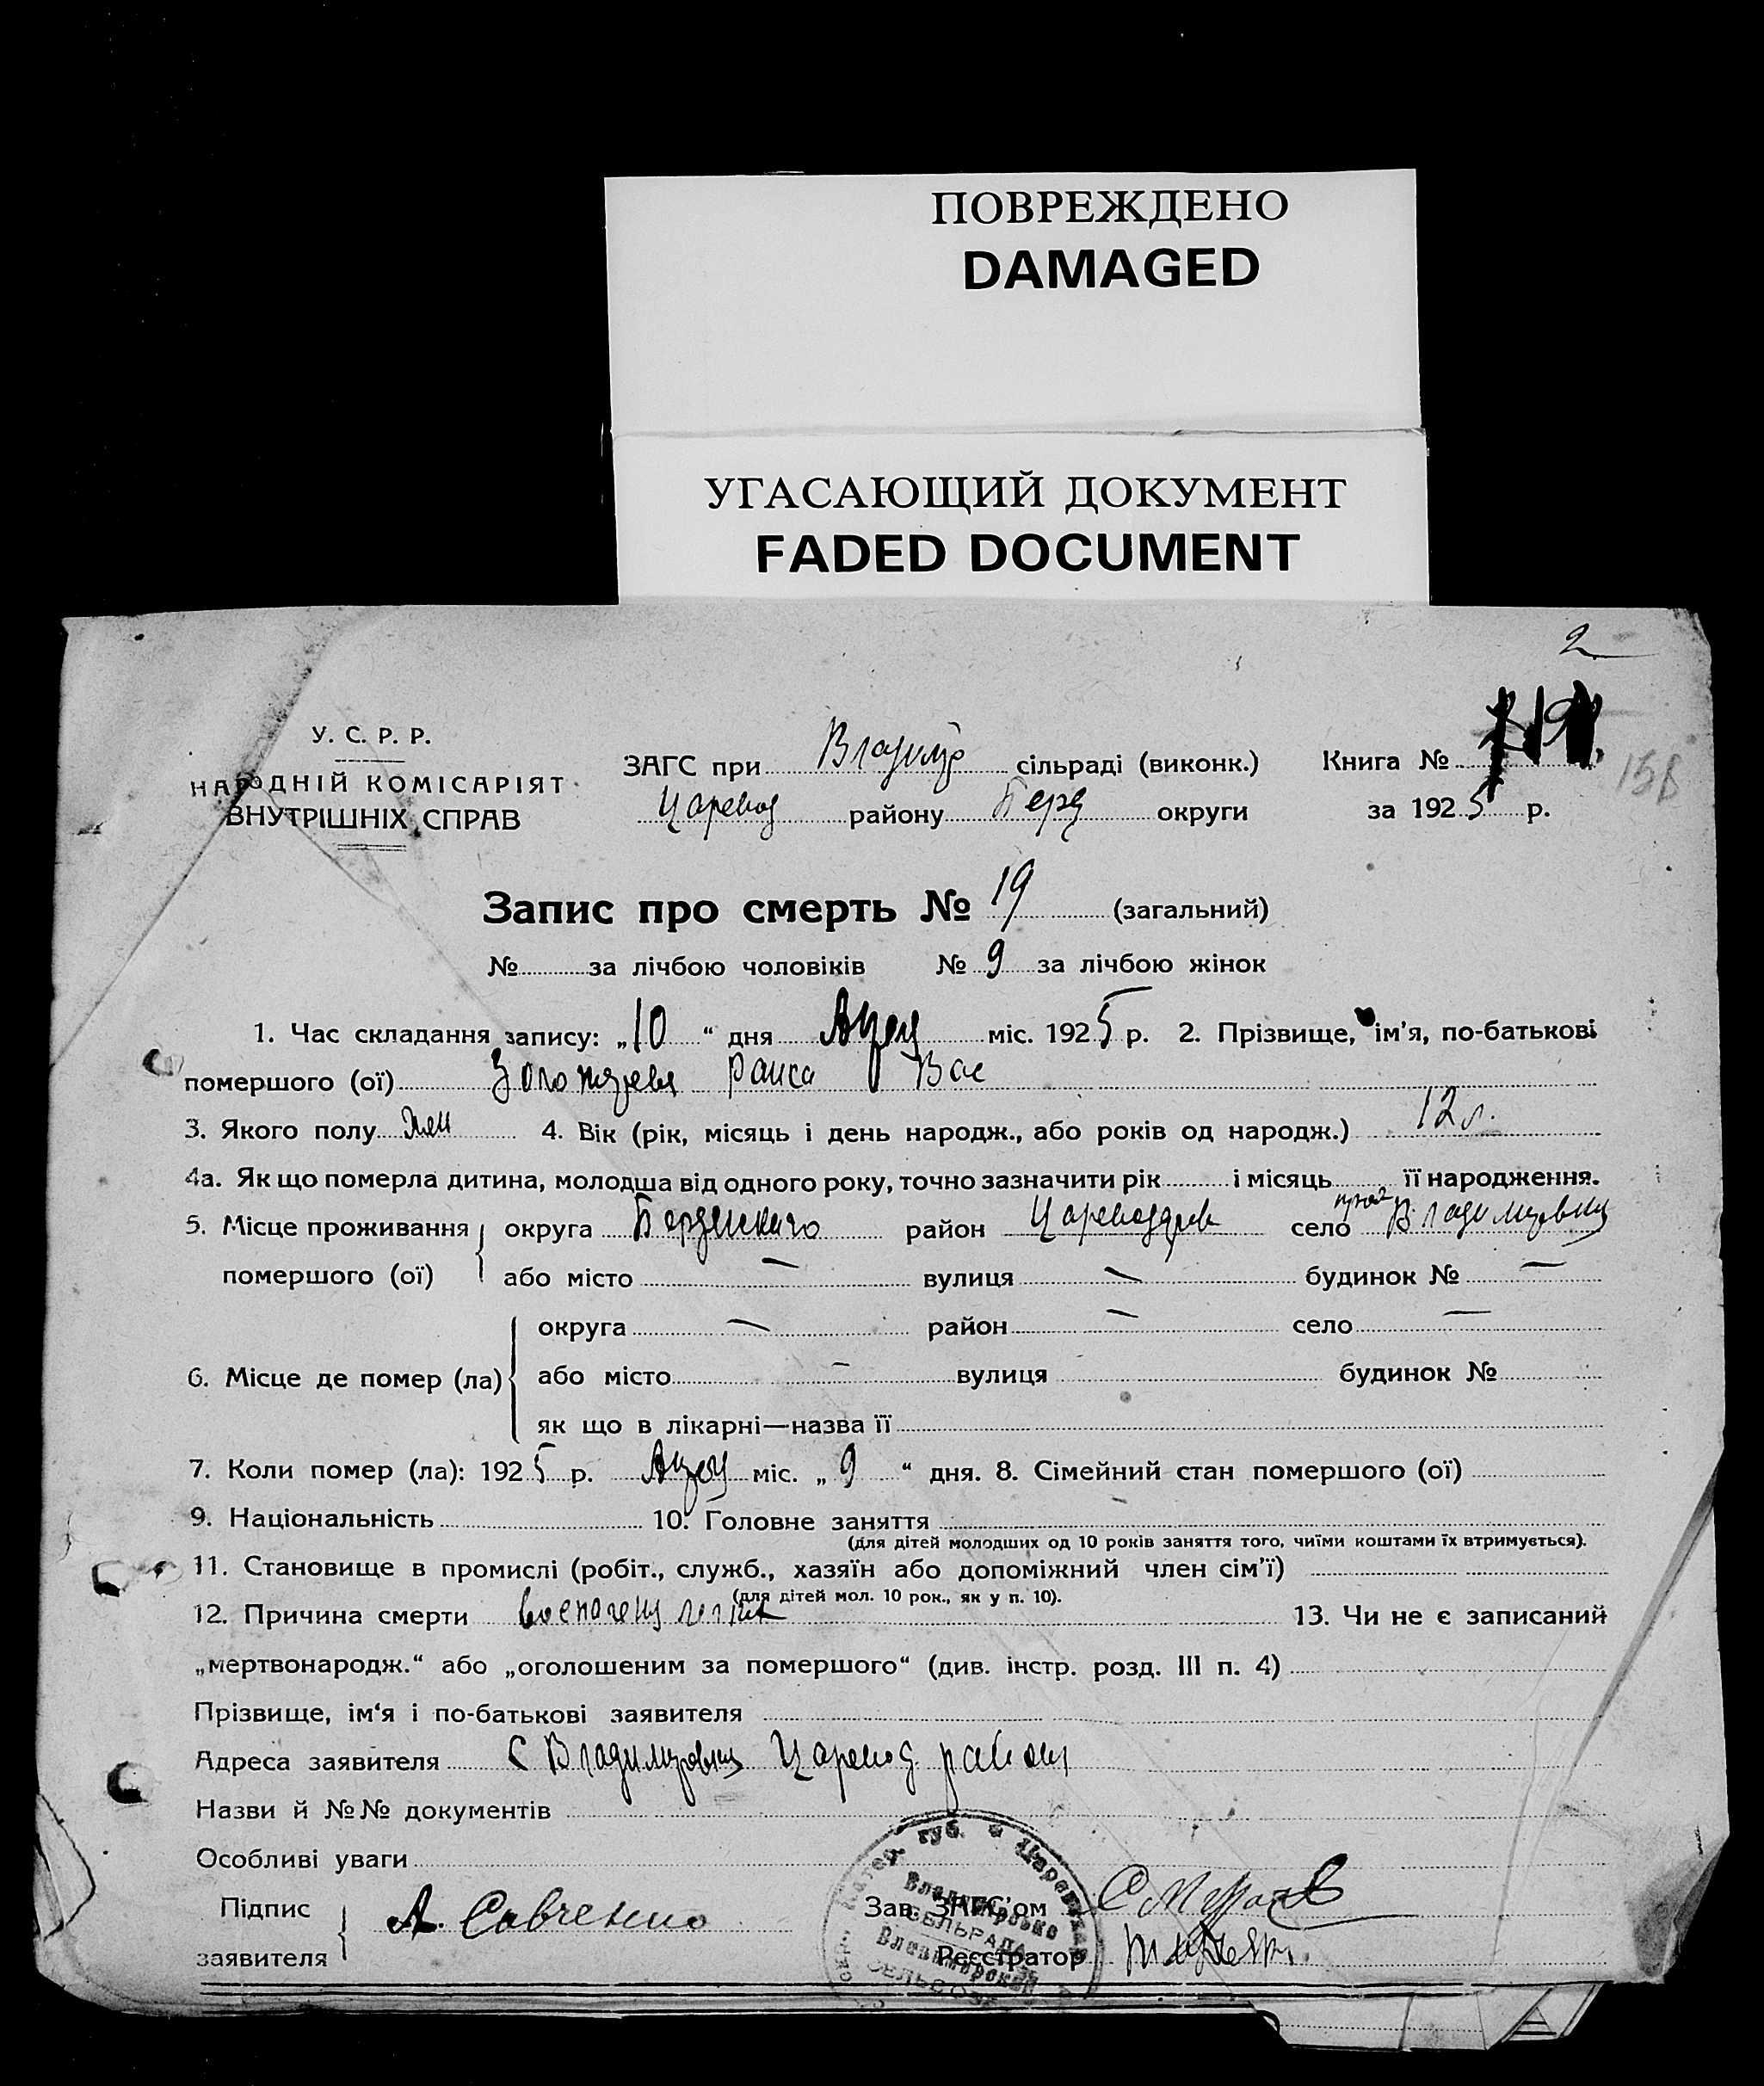 ПОВРЕЖДЕНО
DAMAGED
УГАСАЮЩИЙ ДОКУМЕНТ
FADED DOCUMENT
2
У. С. Р. Р.
НАРОДНІЙ КОМІСАРІЯТ
ВНУТРІШНІХ СПРАВ
ЗАГС при Владимір сільраді (виконк.) Книга №
Царевод району Берд округи за 1925 р.
Запис про смерть № 19 (загальний)
№ за лічбою чоловіків № 9 за лічбою жінок
1. Час складання запису: „10“ дня міс. 1925 р. 2. Прізвище, ім'я, по-батькові
помершого (ої) Раиса Вас
3. Якого полу жен 4. Вік (рік, місяць і день народж., або років од народж.) 12 л.
4а. Як що померла дитина, молодша від одного року, точно зазначити рік і місяць її народження.
5. Місце проживання округа район село
помершого (ої) або місто — вулиця — будинок № —
округа — район — село —
6. Місце де помер (ла) або місто — вулиця будинок №
як що в лікарні—назва її
7. Коли помер (ла): 1925 р. міс. „9“ дня. 8. Сімейний стан помершого (ої)
9. Національність 10. Головне заняття
(для дітей молодших од 10 років заняття того, чиїми коштами їх втримується).
11. Становище в промислі (робіт., служб., хазяїн або допоміжний член сім'ї)
(для дітей мол. 10 рок., як у п. 10).
12. Причина смерти 13. Чи не є записаний
„мертвонародж.“ або „оголошеним за помершого“ (див. інстр. розд. III п. 4)
Прізвище, ім'я і по-батькові заявителя
Адреса заявителя с Владимировка Царевод района
Назви й №№ документів
Особливі уваги
Підпис А. Савченко Зав. ЗАГС'ом
заявителя Реєстратор